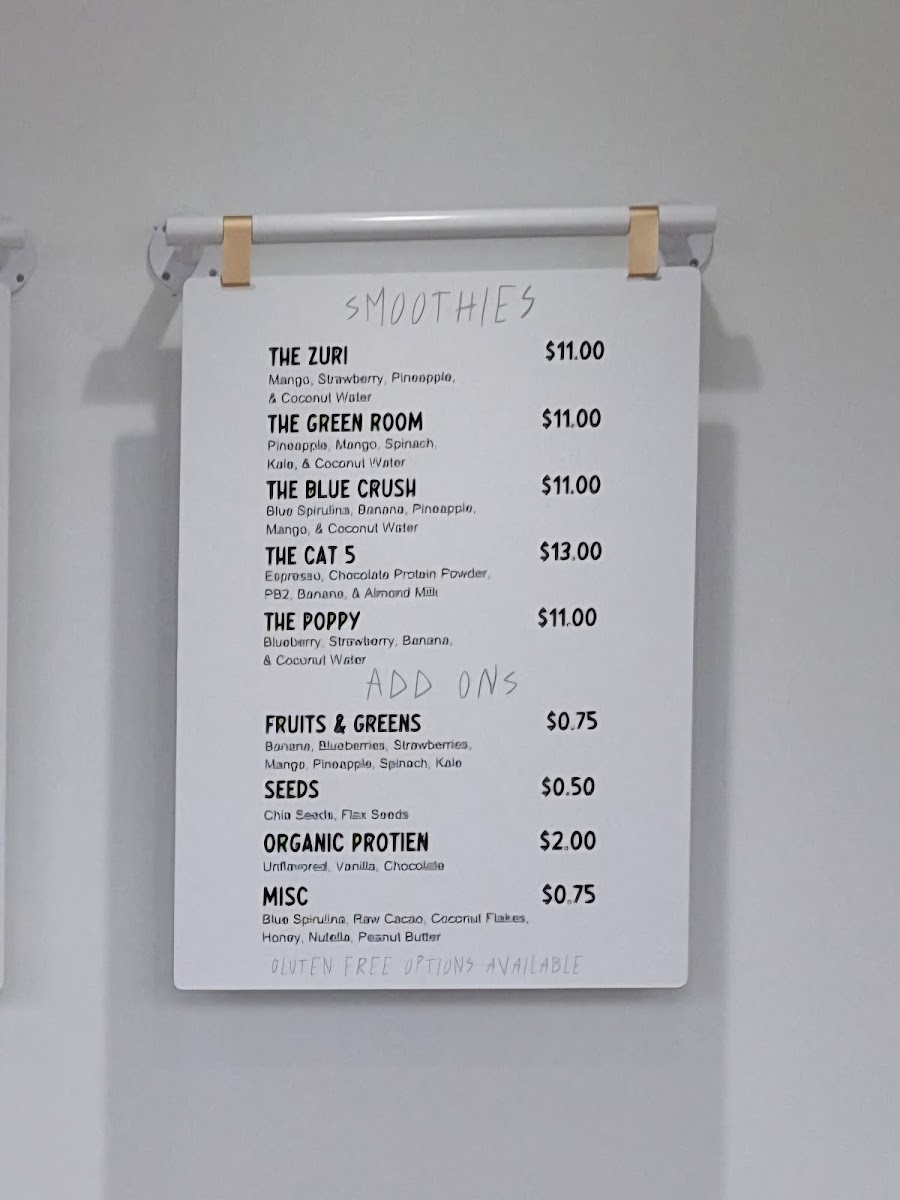 SMOOTHIES
THE ZURI $11.00
Mango, Strawberry, Pineapple,
& Coconut Water
THE GREEN ROOM $11.00
Pineapple, Mango, Spinach,
Kale, & Coconut Water
THE BLUE CRUSH $11.00
Blue Spirulina, Banana, Pineapple,
Mango, & Coconut Water
THE CAT 5 $13.00
Espresso, Chocolate Protein Powder,
PB2, Banana, & Almond Milk
THE POPPY $11.00
Blueberry, Strawberry, Banana,
& Coconut Water
ADD ONS
FRUITS & GREENS $0.75
Banana, Blueberries, Strawberries,
Mango, Pineapple, Spinach, Kale
SEEDS $0.50
Chia Seeds, Flax Seeds
ORGANIC PROTIEN $2.00
Unflavored, Vanilla, Chocolate
MISC $0.75
Blue Spirulina, Raw Cacao, Coconut Flakes,
Honey, Nutella, Peanut Butter
GLUTEN FREE OPTIONS AVAILABLE